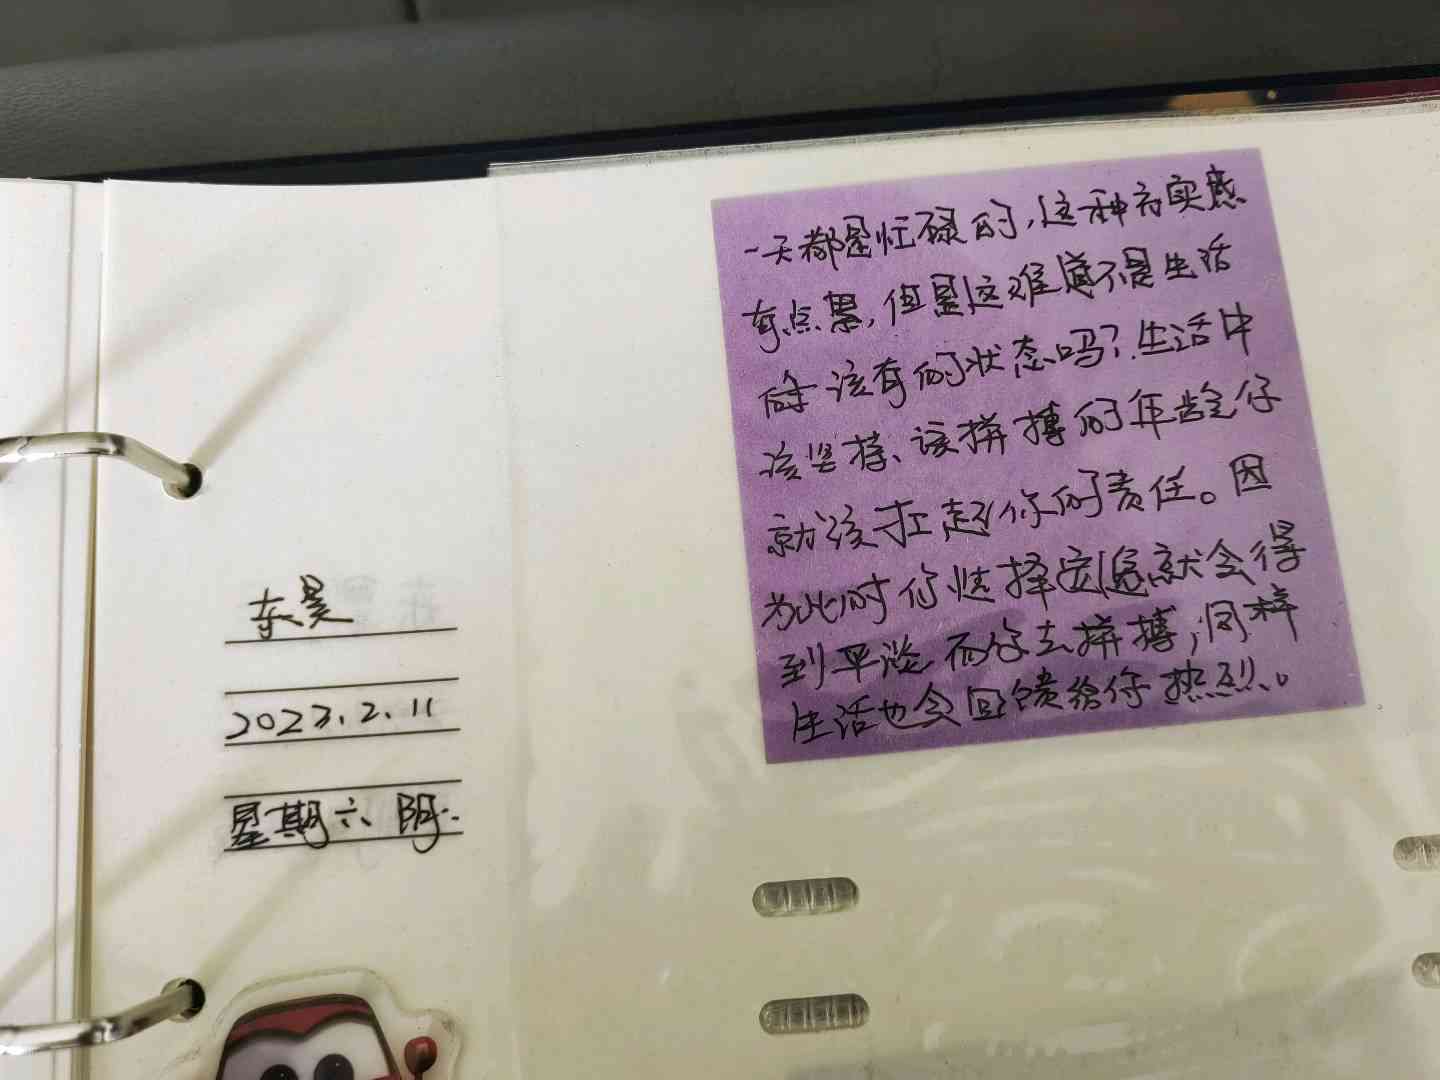 东昊
2023.2.11
星期六 阴.
一天都是忙碌的,这种方实感
有点累,但是这难道不是生活
该有的状态吗?生活中
该坚持、该拼搏的年龄仔
就该扛起你的责任。因
为此时你选择安逸就会得
到平淡 而你去拼搏,同样
生活也会回馈给你热烈。